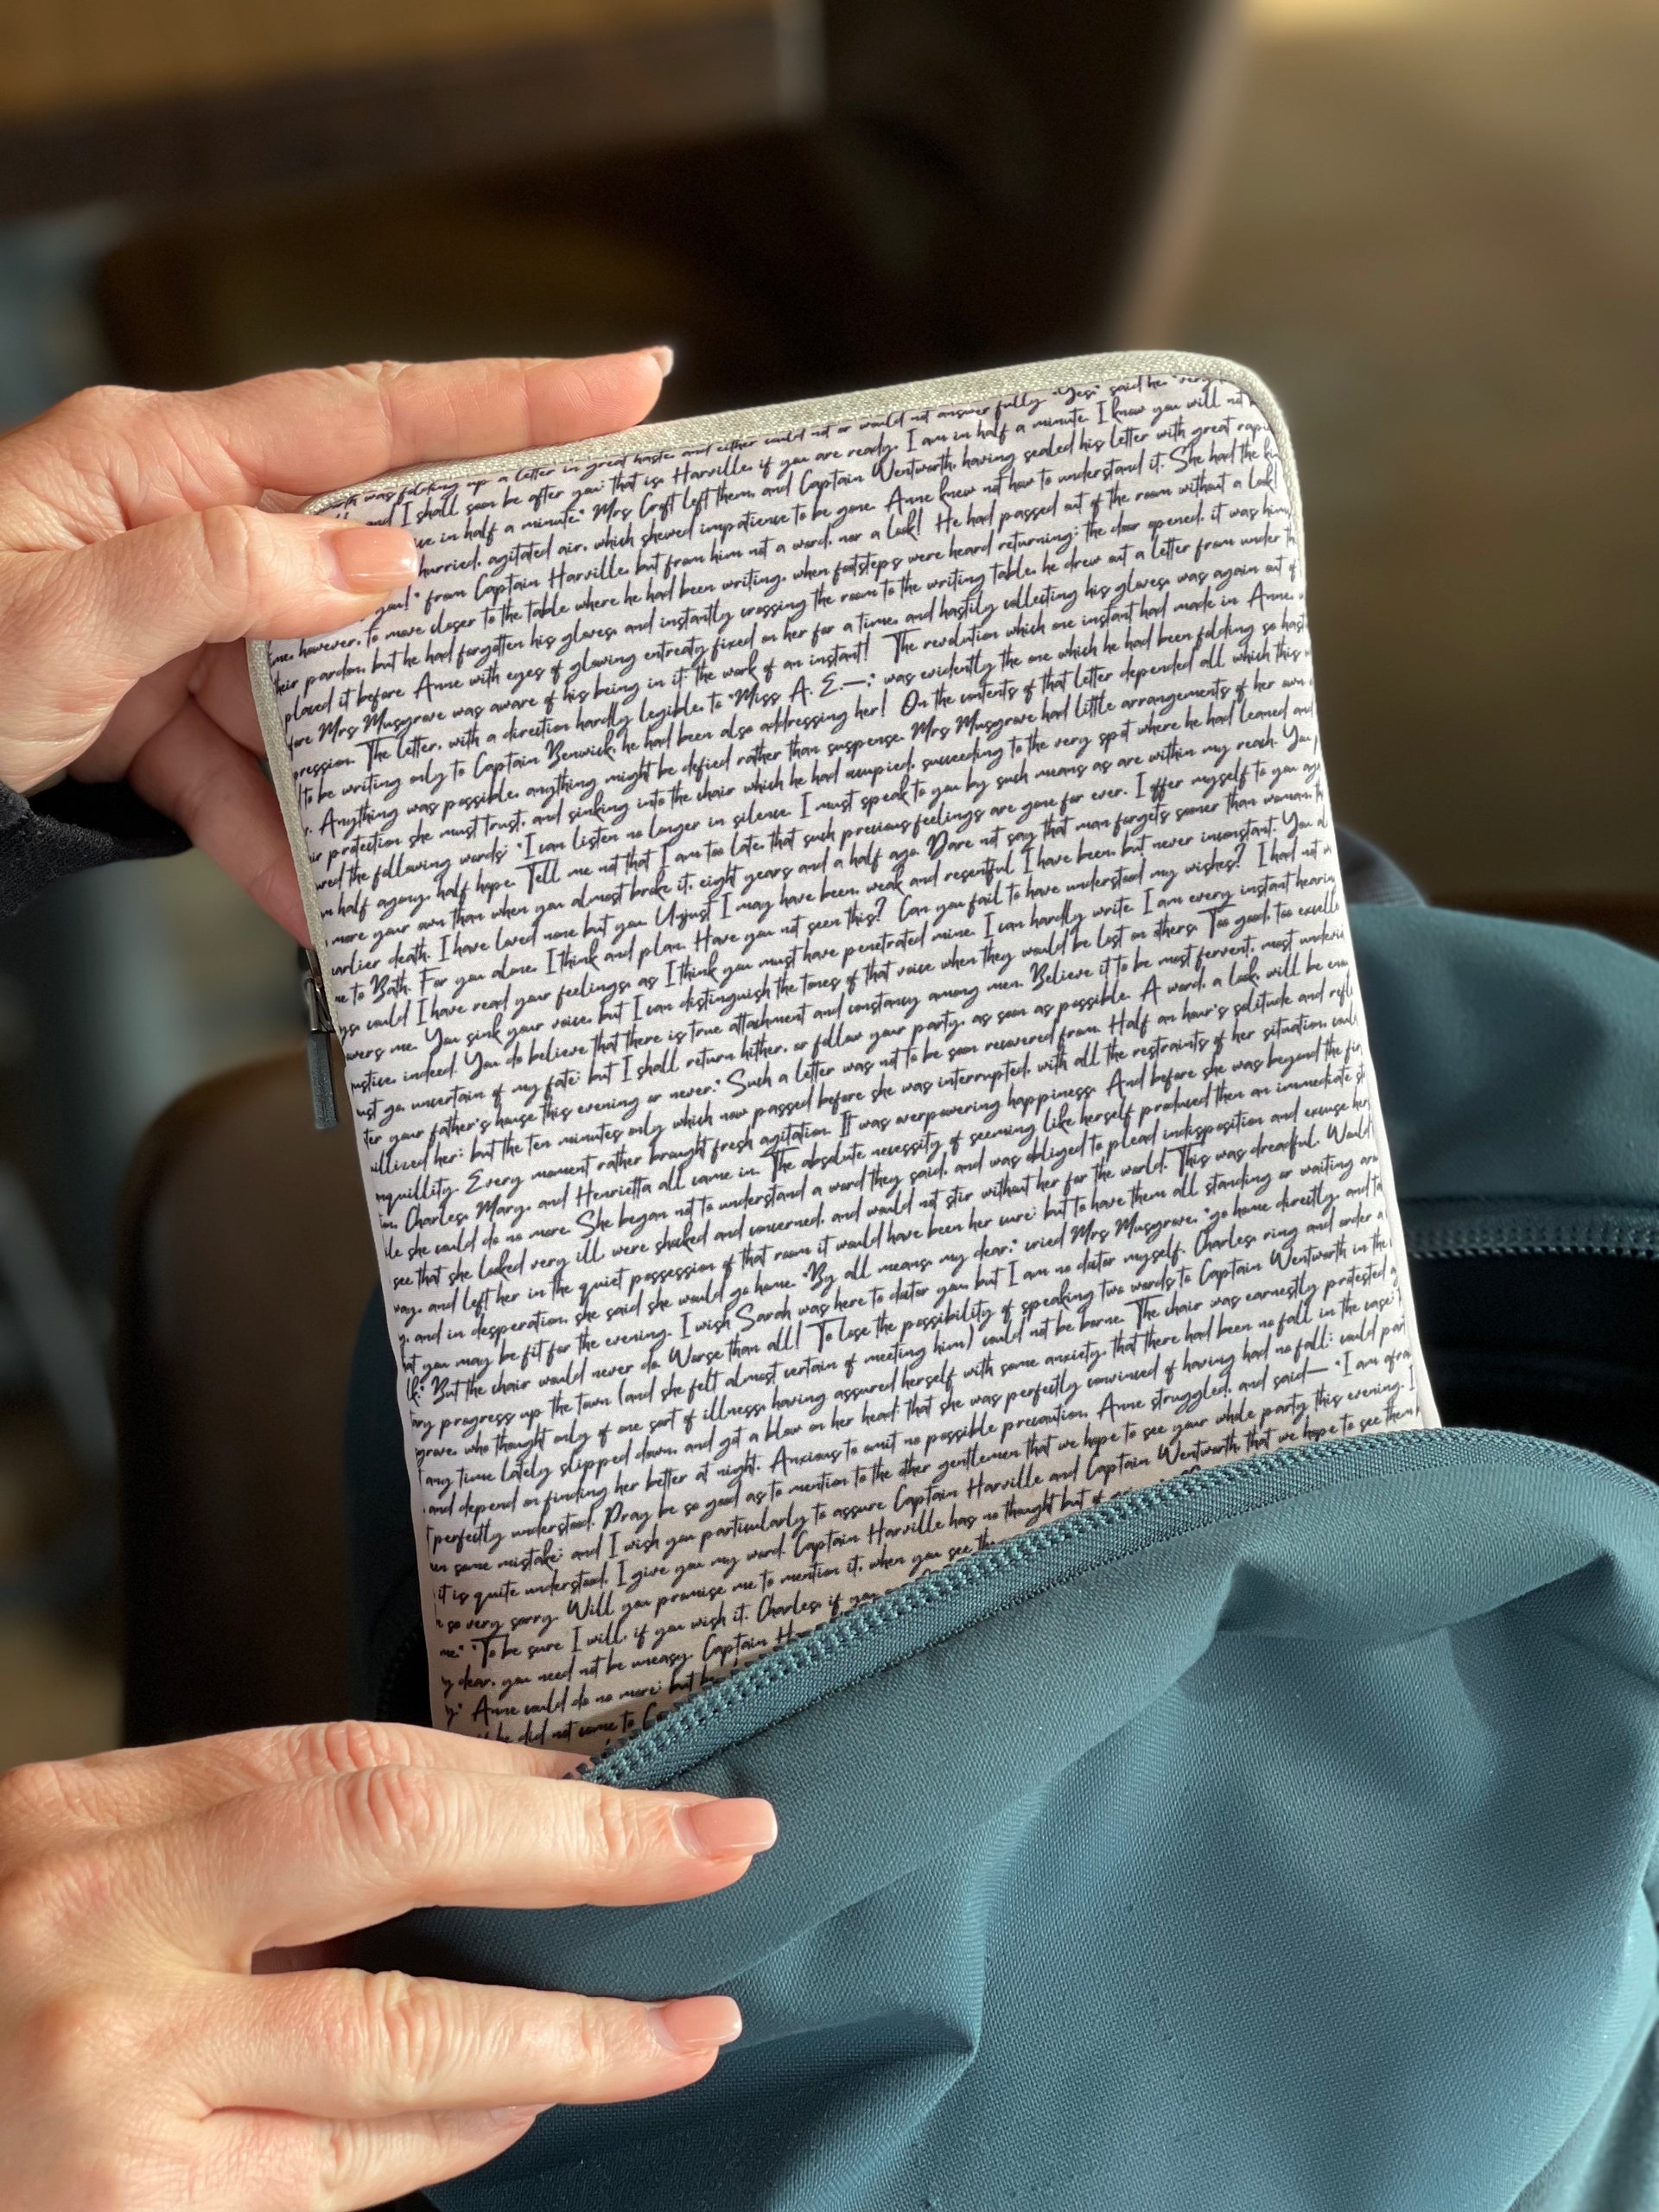 was folding up a letter in great haste, and either could not or would not answer fully. "Yes," said he, "very
and I shall soon be after you; that is, Harville, if you are ready, I am in half a minute. I know you will not
in half a minute." Mrs Croft left them, and Captain Wentworth, having sealed his letter with great rapi
hurried, agitated air, which shewed impatience to be gone. Anne knew not how to understand it. She had the kin
you!" from Captain Harville, but from him not a word, nor a look! He had passed out of the room without a look!
ime, however, to move closer to the table where he had been writing, when footsteps were heard returning; the door opened, it was him
heir pardon, but he had forgotten his gloves, and instantly crossing the room to the writing table, he drew out a letter from under th
placed it before Anne with eyes of glowing entreaty fixed on her for a time, and hastily collecting his gloves, was again out of
fore Mrs Musgrove was aware of his being in it: the work of an instant! The revolution which one instant had made in Anne, w
pression. The letter, with a direction hardly legible, to "Miss A. E.—," was evidently the one which he had been folding so hast
to be writing only to Captain Benwick, he had been also addressing her! On the contents of that letter depended all which this w
r. Anything was possible, anything might be defied rather than suspense. Mrs Musgrove had little arrangements of her own
ir protection she must trust, and sinking into the chair which he had occupied, succeeding to the very spot where he had leaned and
ured the following words: "I can listen no longer in silence. I must speak to you by such means as are within my reach. You p
m half agony, half hope. Tell me not that I am too late, that such precious feelings are gone for ever. I offer myself to you ag
more your own than when you almost broke it, eight years and a half ago. Dare not say that man forgets sooner than woman, th
arlier death. I have loved none but you. Unjust I may have been, weak and resentful I have been, but never inconstant. You al
ne to Bath. For you alone, I think and plan. Have you not seen this? Can you fail to have understood my wishes? I had not w
ys, could I have read your feelings, as I think you must have penetrated mine. I can hardly write. I am every instant hearin
wers me. You sink your voice, but I can distinguish the tones of that voice when they would be lost on others. Too good, too excelle
ustice, indeed. You do believe that there is true attachment and constancy among men. Believe it to be most fervent, most undevia
ust go, uncertain of my fate; but I shall return hither, or follow your party, as soon as possible. A word, a look, will be eno
ter your father's house this evening or never." Such a letter was not to be soon recovered from. Half an hour's solitude and refl
uillized her; but the ten minutes only which now passed before she was interrupted, with all the restraints of her situation, coul
nquillity. Every moment rather brought fresh agitation. It was overpowering happiness. And before she was beyond the fir
ion, Charles, Mary, and Henrietta all came in. The absolute necessity of seeming like herself produced then an immediate st
ile she could do no more. She began not to understand a word they said, and was obliged to plead indisposition and excuse her
see that she looked very ill, were shocked and concerned, and would not stir without her for the world. This was dreadful. Would
way, and left her in the quiet possession of that room it would have been her cure; but to have them all standing or waiting aro
g, and in desperation, she said she would go home. "By all means, my dear," cried Mrs Musgrove, "go home directly, and ta
at you may be fit for the evening. I wish Sarah was here to doctor you, but I am no doctor myself. Charles, ring and order a
lk." But the chair would never do. Worse than all! To lose the possibility of speaking two words to Captain Wentworth in the
ary progress up the town (and she felt almost certain of meeting him) could not be borne. The chair was earnestly protested a
grove, who thought only of one sort of illness, having assured herself with some anxiety, that there had been no fall in the case;
any time lately slipped down, and got a blow on her head; that she was perfectly convinced of having had no fall; could part
and depend on finding her better at night. Anxious to omit no possible precaution, Anne struggled, and said— "I am afrai
perfectly understood. Pray be so good as to mention to the other gentlemen that we hope to see your whole party this evening. I
en some mistake; and I wish you particularly to assure Captain Harville and Captain Wentworth, that we hope to see them
it is quite understood, I give you my word. Captain Harville has no thought but of
so very sorry. Will you promise me to mention it, when you see the
me." "To be sure I will, if you wish it. Charles, if you
y dear, you need not be uneasy. Captain
y." Anne could do no more; but
he did not come to